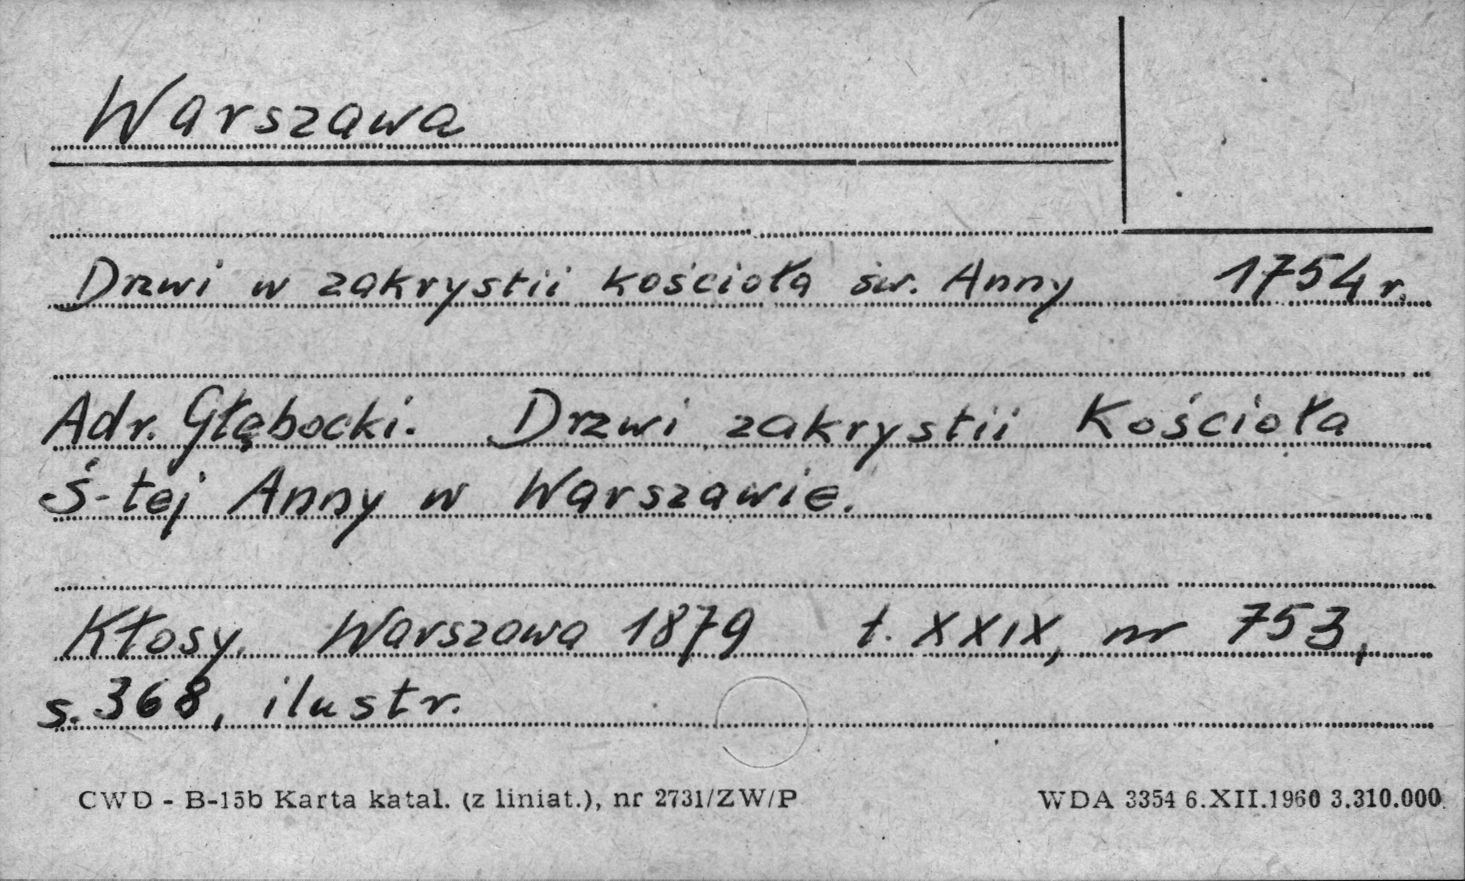 Warszawa
Drzwi w zakrystii kościoła św. Anny 1754 r.
Adr. Głębocki. Drzwi zakrystii Kościoła
Ś-tej Anny w Warszawie.
Kłosy. Warszawa 1879 t. XXIX, nr 753,
s. 368, ilustr.
CWD - B-15b Karta katal. (z liniat.), nr 2731/ZW/P WDA 3354 6.XII.1960 3.310.000